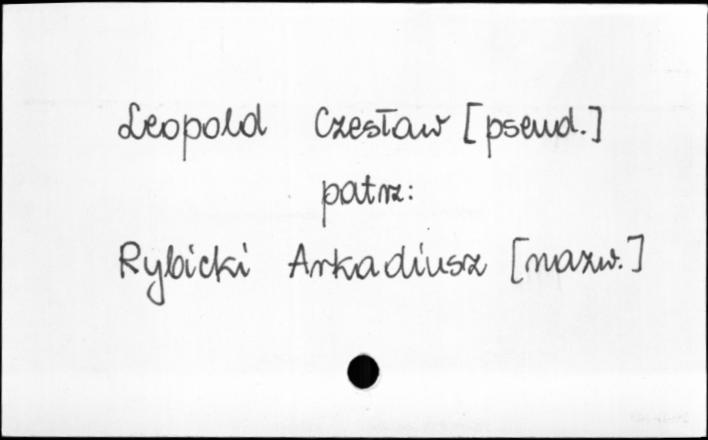 Leopold Czesław [pseud.]
patrz:
Rybicki Arkadiusz [nazw.]